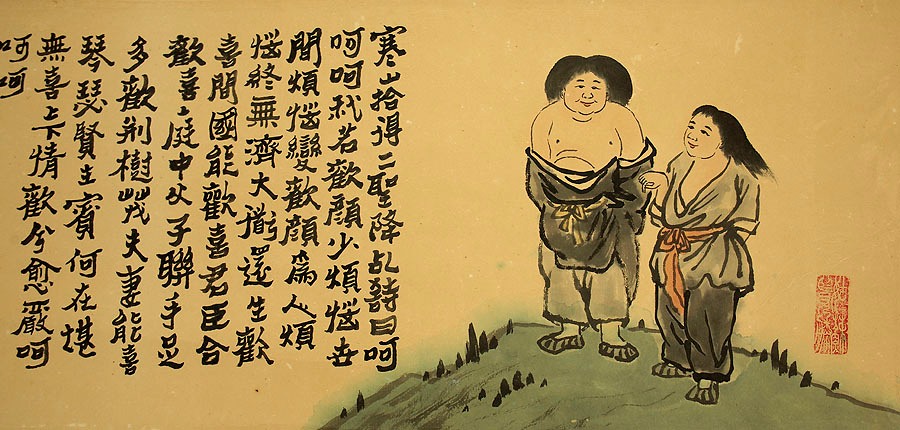 寒山拾得二聖降乩詩曰呵
呵呵我若歡顏少煩惱世
間煩惱變歡顏爲人煩
惱終無濟大道還生歡
喜間國能歡喜君臣合
歡喜庭中父子聯手足
多歡荊樹茂夫妻能喜
琴瑟賢主賓何在堪
無喜上下情歡兮愈嚴呵
呵呵